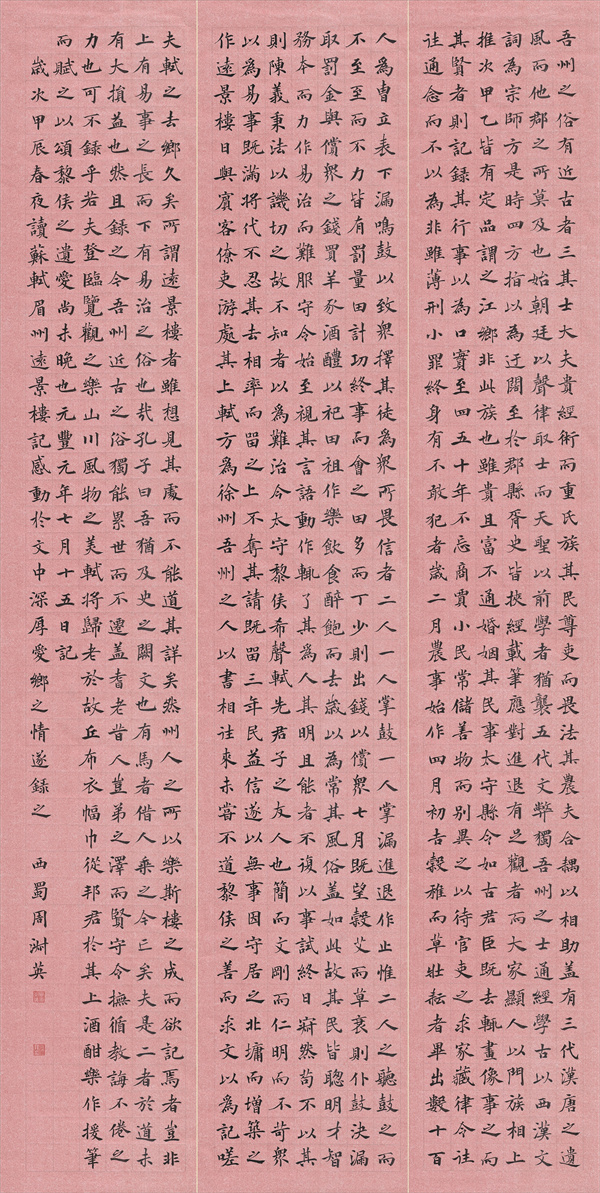 吾州之俗有近古者三其士大夫貴經術而重氏族其民尊吏而畏法其農夫合耦以相助蓋有三代漢唐之遺
風而他郡之所莫及也始朝廷以聲律取士而天聖以前學者猶襲五代文弊獨吾州之士通經學古以西漢文
詞為宗師方是時四方指以為迂闊至於郡縣胥史皆挾經載筆應對進退有足觀者而大家顯人以門族相上
推次甲乙皆有定品謂之江鄉非此族也雖貴且富不通婚姻其民事太守縣令如古君臣既去輒畫像事之而
其賢者則記錄其行事以為口實至四五十年不忘商賈小民常儲善物而別異之以待官吏之求家藏律令往
往通念而不以為非雖薄刑小罪終身有不敢犯者歲二月農事始作四月初吉穀稚而草壯耘者畢出數十百
人為曹立表下漏鳴鼓以致眾擇其徒為眾所畏信者二人一人掌鼓一人掌漏進退作止惟二人之聽鼓之而
不至至而不力皆有罰量田計功終事而會之田多而丁少則出錢以償眾七月既望穀艾而草衰則仆鼓決漏
取罰金與償眾之錢買羊豕酒醴以祀田祖作樂飲食醉飽而去歲以為常其風俗蓋如此故其民皆聰明才智
務本而力作易治而難服守令始至視其言語動作輒了其為人其明且能者不復以事試終日寂然苟不以其
則陳義秉法以譏切之故不知者以為難治今太守黎侯希聲軾先君子之友人也簡而文剛而仁明而不苛眾
以為易事既滿將代不忍其去相率而留之上不奪其請既留三年民益信遂以無事因守居之北墉而增築之
作遠景樓日與賓客僚吏游處其上軾方為徐州吾州之人以書相往來未嘗不道黎侯之善而求文以為記嗟
夫軾之去鄉久矣所謂遠景樓者雖想見其處而不能道其詳矣然州人之所以樂斯樓之成而欲記焉者豈非
上有易事之長而下有易治之俗也哉孔子曰吾猶及史之闕文也有馬者借人乘之今亡矣夫是二者於道未
有大損益也然且錄之今吾州近古之俗獨能累世而不遷蓋耆老昔人豈弟之澤而賢守令撫循教誨不倦之
力也可不錄乎若夫登臨覽觀之樂山川風物之美軾將歸老於故丘布衣幅巾從邦君於其上酒酣樂作援筆
而賦之以頌黎侯之遺愛尚未晚也元豐元年七月十五日記
歲次甲辰春夜讀蘇軾眉州遠景樓記感動於文中深厚愛鄉之情遂錄之 西蜀周淑英